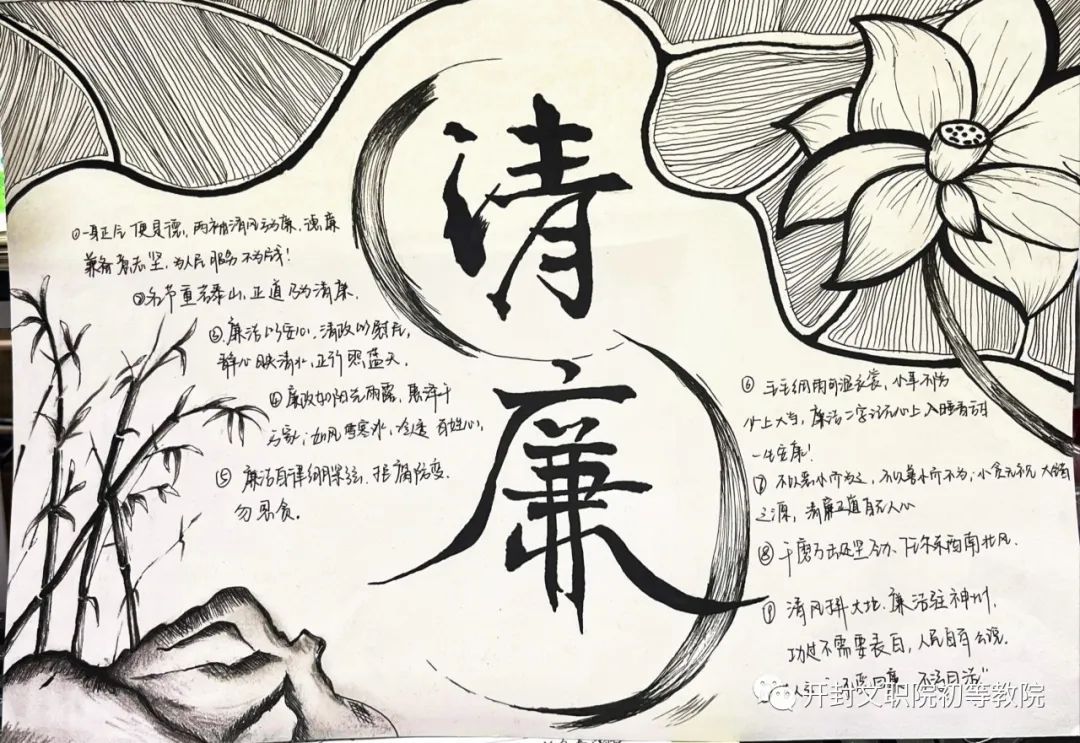 清
廉
①一身正气便是德,两袖清风动廉,德廉
兼备者志坚,为人民服务不为钱!
②名节重若泰山,正道乃为清廉.
③廉洁以安心,清政以慰民,
静心映清水,正行照蓝天.
④廉政如阳光雨露,惠泽千
万家;如风雪寒冰,冷透百姓心,
⑤廉洁自律绷紧弦,拒腐防变
勿思贪。
⑥毛毛细雨可湿衣裳,小事不防
上大当,廉洁二字记心上,入睡
一生安康!
⑦不以恶小而为之,不以善小而不为;小贪
之源,清廉正直有人心
⑧千磨万击还坚劲、任尔东西南北风.
⑨清风拂大地.廉洁驻神州,
功过不需要表白,人民自有公说.
不受曰廉 不污曰洁"
开封文职院初等教院